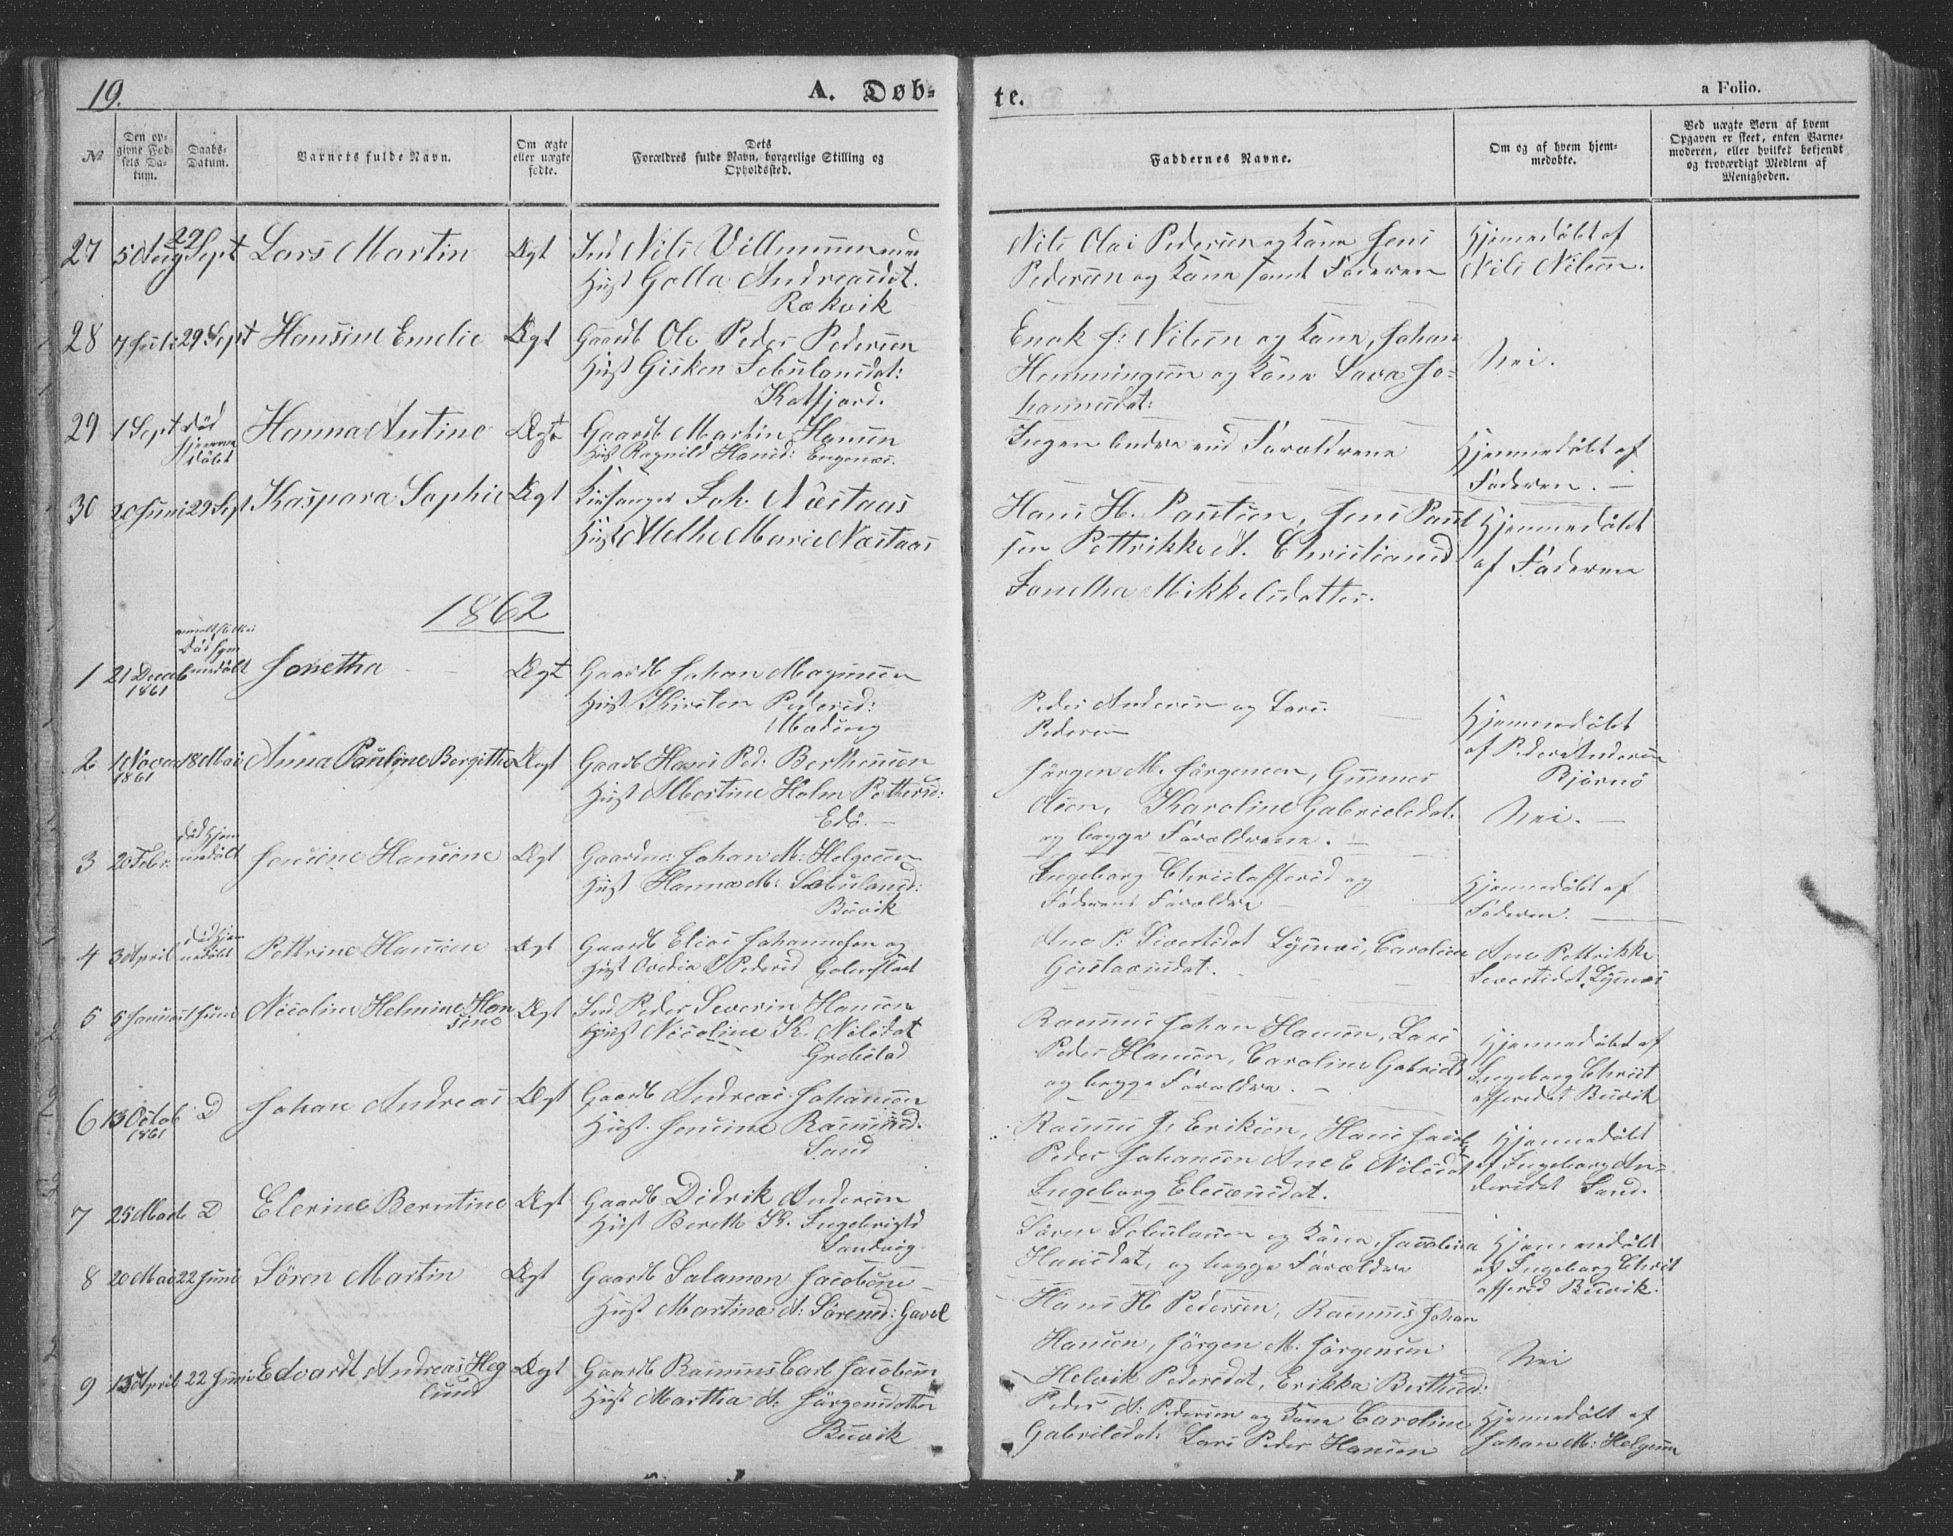 19.
A. Døb-
te.
a Folio.
No
Den op-
givne Fød-
sels Da-
tum.
Daabs-
Datum.
Barnets fulde Navn.
Om ægte
eller uægte
fødte.
Dets
Forældres fulde Navn, borgerlige Stilling og
Opholdssted.
Faddernes Navne.
Om og af hvem hjem-
medøbte.
Ved uægte Børn af hvem
Opgaven er skeet, enten Barne-
moderen, eller hvilket bekjendt
og troværdigt Medlem af
Menigheden.
27 5 Aug 29 Sept Lars Martin Ægt Ind Nils Villumsen
Hust Golla Andreasdat.
Rækvik
Nils Olai Pedersen og Kone Jens
Pedersen og Kone samt Faderen
Hjemmedøbt af
Nils Nilsen.
28 7 Juli 29 Sept Hansine Emelie Ægt Gaardb Ole Peder Pedersen
Hust Gisken Sebulonsdat:
Katfjord.
Enok J: Nilsen og Kone, Johan
Hemmingsen og Kone Lava Jo-
hannesdat:
Nei.
29 1 Sept Død
Hjemme
døbt
Hanna Antine Ægt Gaardb Martin Hansen
Hust Ragnild Hansd: Engenes.
Ingen andre end Forældrene
Hjemmedøbt af
Faderen.
30 20 Juni 29 Sept Kaspara Sophie Ægt Kirksanger Joh. Næstaas
Hust Methe Marie Næstaas
Hans H. Paulsen, Jens Paul
sen Pettrikke A. Christiansd
Jonetha Mikkelsdatter.
Hjemmedøbt
af Faderen
1862
1 21 Decemb
1861
Død Hjem
medøbt
Jonetha Ægt Gaardb Johan Magnusen
Hust Kirsten Pedersd:
Peder Andersen og Lars
Pedersen
Hjemmedøbt
af Peder Andersen
Bjørnø
2 1 Novem
1861
18 Mai Anna Pauline Bergithe Ægt Gaardb Hans Ped. Berthensen
Hust Albertine Holm Pettersd:
Edø.
Jørgen M. Jørgensen, Gunner
Olsen, Karoline Gabrielsdat.
og begge Forældrene.
Nei.
3 20 Febr. Død Hjem
medøbt
Jonsine Hansine Ægt Gaardm: Johan M: Helgesen
Hust Hanna M: Sebulonsd:
Buvik
Ingeborg Christoffersd og
Faderens Forældre
Hjemmedøbt af
Faderen.
4 3 April Død Hjem
medøbt
Pettrine Hansine Ægt Gaardb Elias Johannesen og
Hust Ovedia P Pedersd
Ane P: Sivertsdat Lysnes, Caroline
Gustavsdat.
Ane Pettrikke
Sivertsdat Lysnes
5 6 Januar 1 Juni Nicoline Helmine Han
sine
Ægt Ind Peder Severin Hansen
Hust Nicoline K. Nilsdat
Grebstad
Rasmus Johan Hansen, Lars
Peder Hansen, Caroline Gabrielsd
og begge Forældre.
Hjemmedøbt af
Ingeborg Christ
offersdat Buvik
6 13 Octob
1861
D Johan Andreas Ægt Gaardb Andreas Johansen
Hust. Jonsine Rasmusd.
Sand
Rasmus J. Eriksen, Hans Jacob
Peder Johansen Ane E Nilsdat
Ingeborg Eliasensdat.
Hjemmedøbt
af Ingeborg An-
dersdat Sand.
7 25 Marts D Elerine Berntine Ægt Gaardb Didrik Andersen
Hust Berethe K. Ingebrigtsd
Sandvig
Søren Sebulonsen og Kone, Jacobine
Hansdat, og begge Forældre
Hjemmedøbt
af Ingeborg Christ
offersd Buvik.
8 20 Mai 22 Juni Søren Martin Ægt Gaardb Salamon Jacobsen
Hust Martina A: Sørensd: Gavel
Hans H Pedersen, Rasmus Johan
Hansen, Jørgen M. Jørgensen
Helvik Pedersdat, Erikka Berthusd:
Nei
9 13 April 22 Juni Edvardt Andreas Heg
lund
Ægt Gaardb Rasmus Carl Jacobsen
Hust Martha A. Jørgensdatter
Buvik
Peder A: Pedersen og Kone Caroline
Gabrielsdat. Lars Peder Hansen
Hjemmedøbt af
Johan M: Helgesen